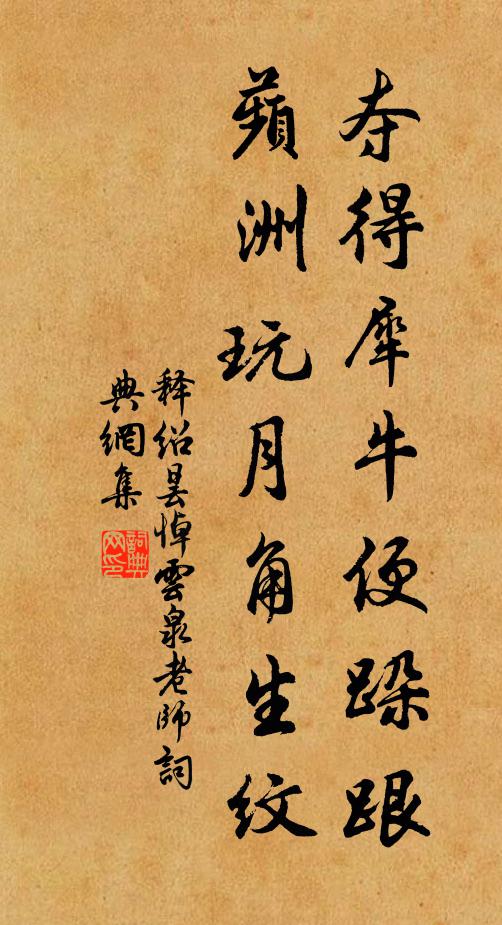 夺得犀牛便跺跟
蘋洲玩月角生紋
释绍昙悼雲泉老師詞
典網集
詞典
网印